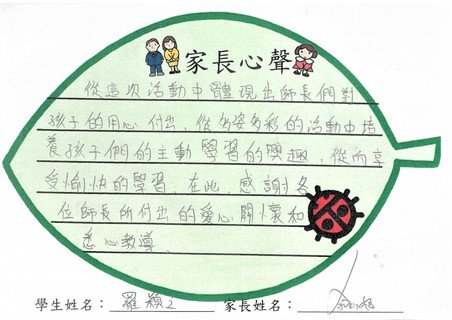 家長心聲
從這次活動中體現出師長們對
孩子的用心付出,從多姿多彩的活動中培
養孩子們的主動學習的興趣,從而享
受愉快的學習,在此,感謝各
位師長所付出的愛心關懷和
悉心教導.
學生姓名: 羅穎之 家長姓名: